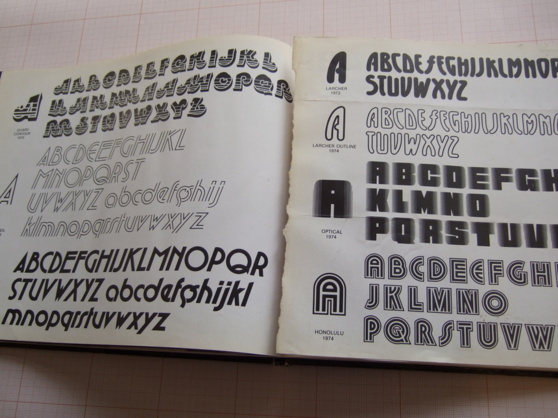 A
ABCDEFGHIJKL
MNOPQRST
UVWXYZ abcdefghij
klmnopqrstuvwxyz
ABCDEFGHIJKLMNOPQR
STUVWXYZ abcdefghijkl
mnopqrstuvwxyz
A
LARCHER
1974
ABCDEFGHIJKLMNOP
STUVWXYZ
A
LARCHER OUTLINE
1974
ABCDEFGHIJKLMNO
TUVWXYZ
A
OPTICAL
1974
ABCDEFGH
KLMNO
PQRSTUV
A
HONOLULU
1974
ABCDEFGHI
JKLMNO
PQRSTUVW